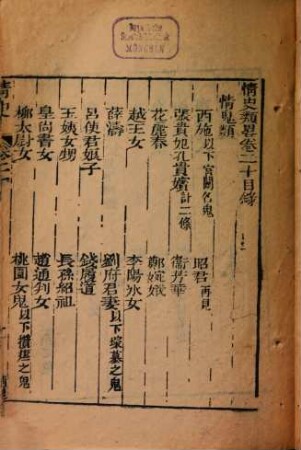 情史類畧卷二十目錄
情鬼類
西施以下宮闈名鬼
昭君再見
張貴妃孔貴嬪計二條
衞芳華
花麗春
鄭婉娥
越王女
李陽氷女
薛濤
劉府君妻以下塜墓之鬼
呂使君娘子
錢履道
王姨女甥
長孫紹祖
皇尚書女
趙通判女
桃園女鬼以下攢瘞之鬼
情史
卷二十